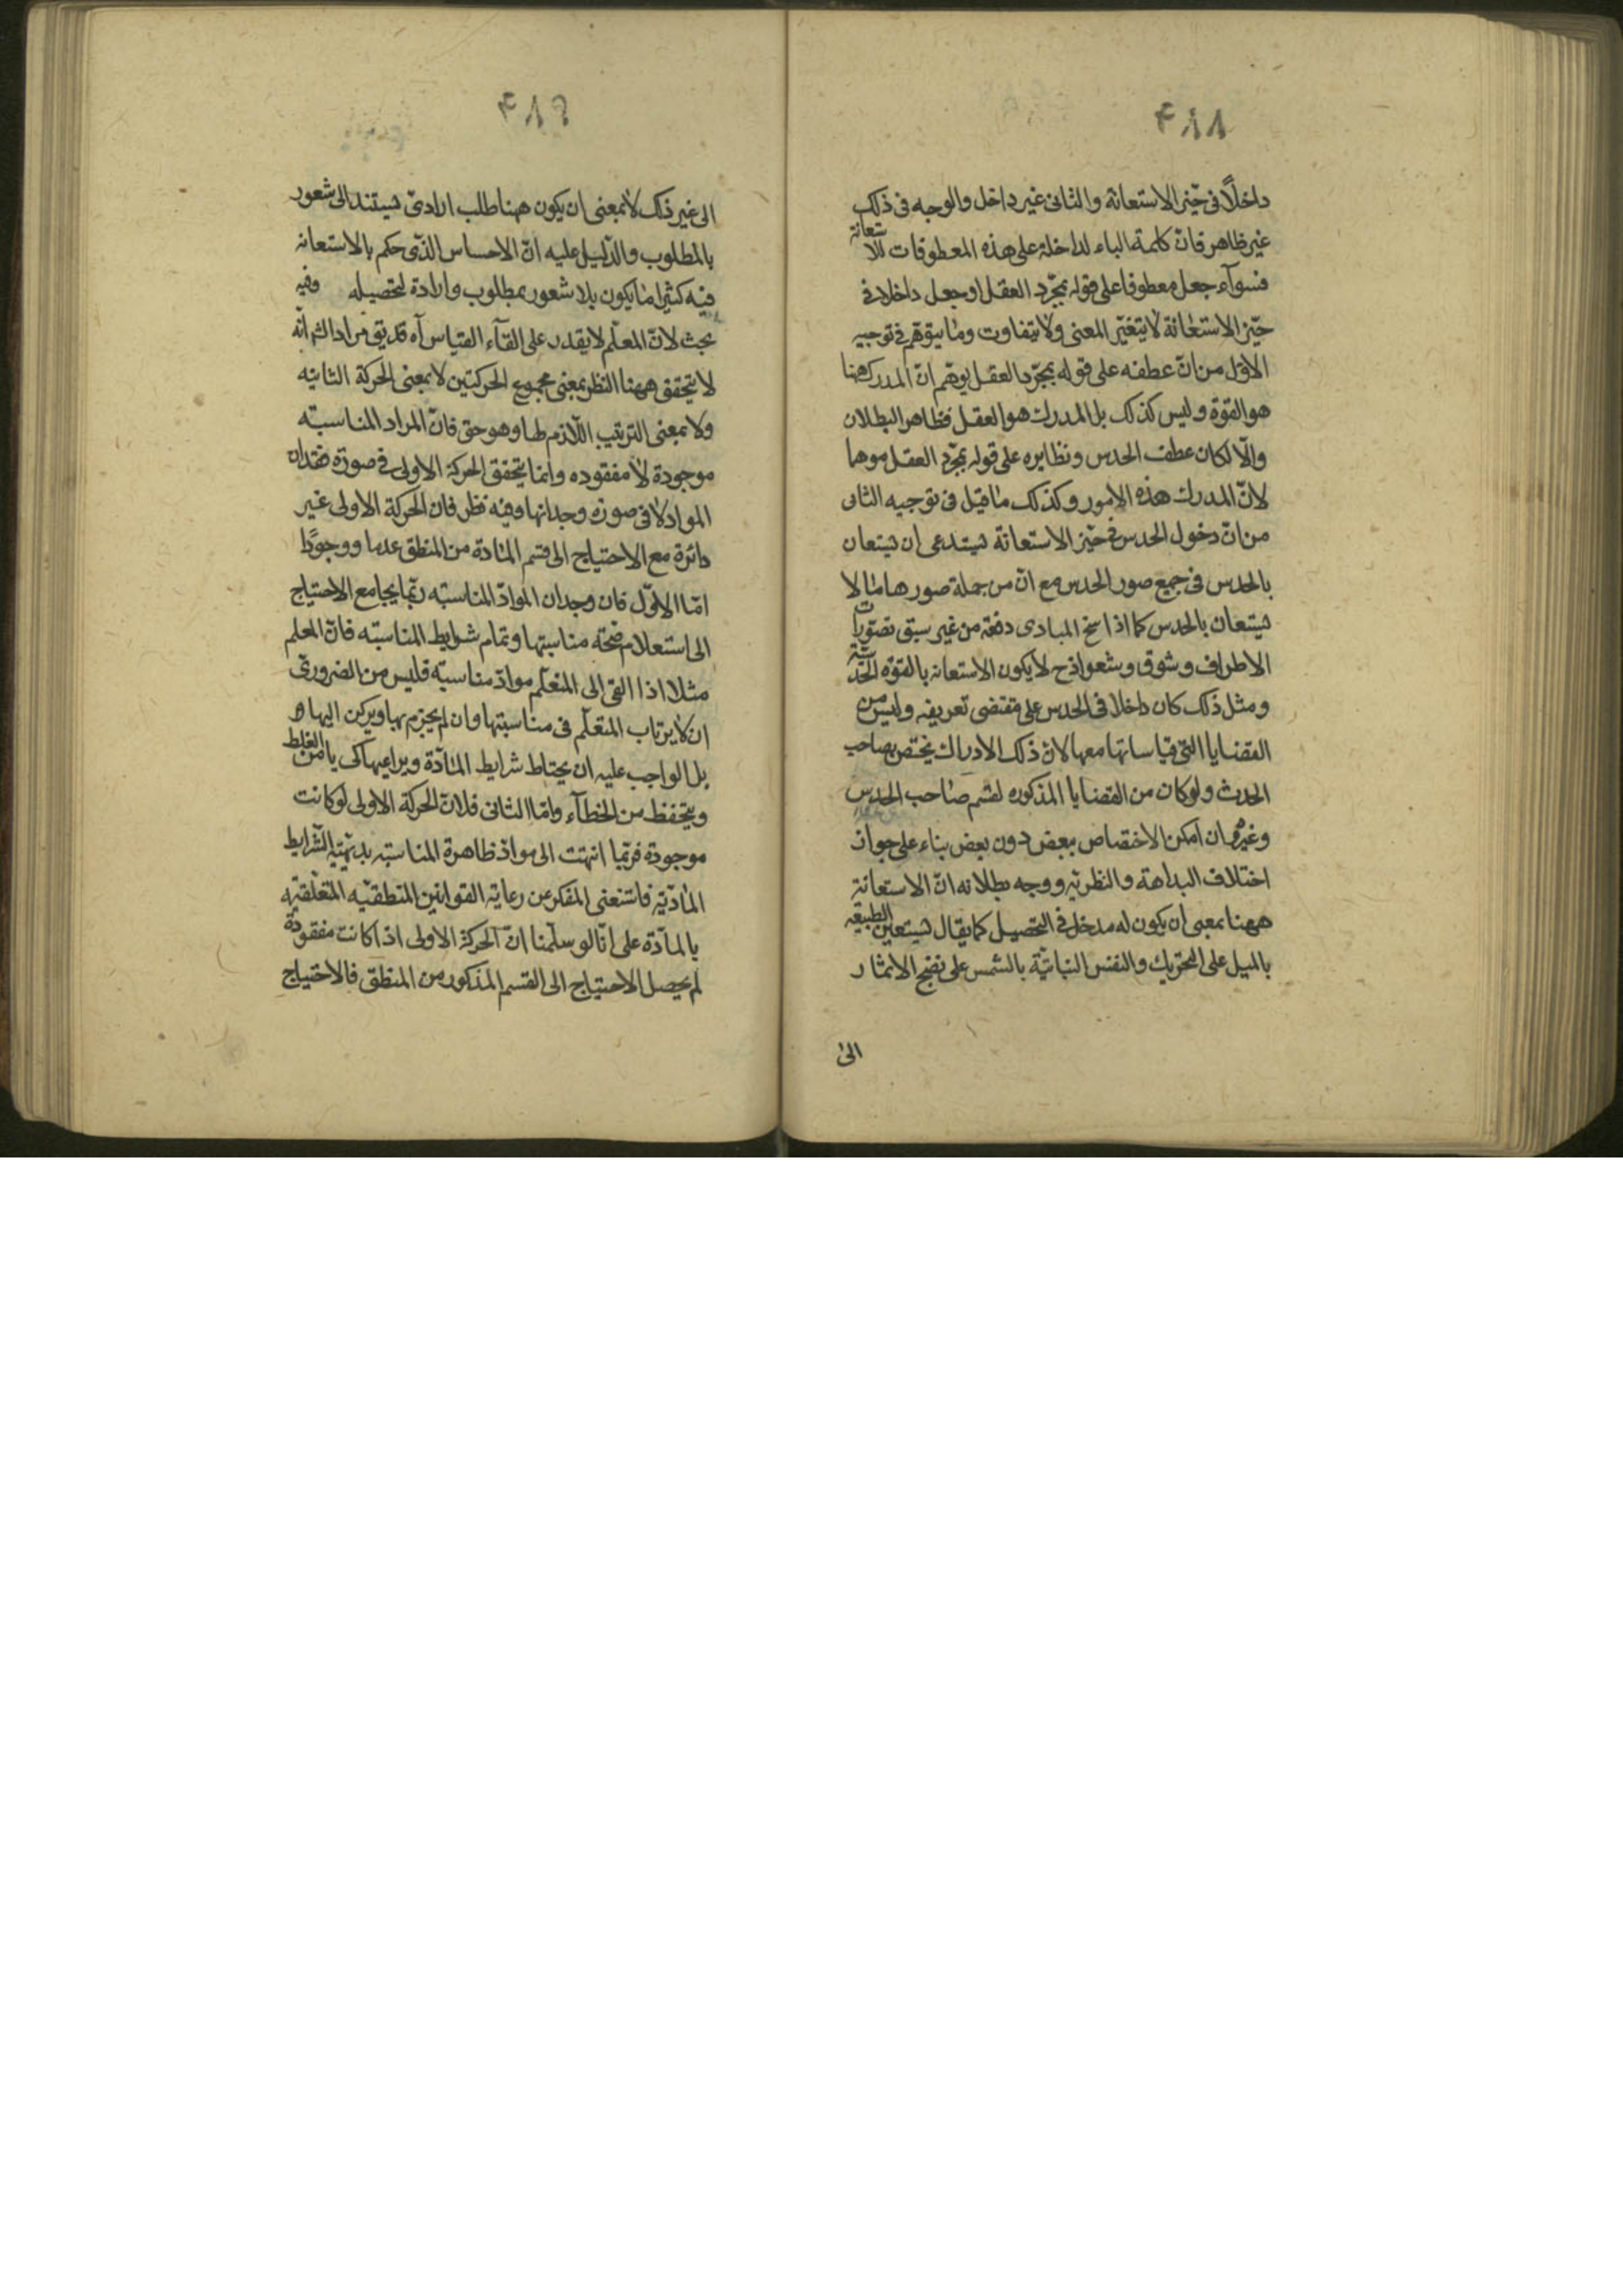 ۴۸۸
داخلاً فى حيّز الاستعانة والثانى غير داخل والوجه فى ذلك
غير ظاهر فانّ كلمة الباء لداخلة على هذه المعطوفات للاستعانة
فسوآء جعل معطوفا على قوله بمجرّد العقل او جعل داخلا فى
حيّز الاستعانة لا يتغيّر المعنى ولا يتفاوت وما يتوهّم فى توجيه
الاوّل من انّ عطفه على قوله بمجرّد العقل يوهم انّ المدرك ههنا
هو القوة وليس كذلك بل المدرك هو العقل فظاهر البطلان
والّا لكان عطف الحدس ونظايره على قوله بمجرّد العقل موهما
لانّ المدرك هذه الامور وكذلك ما قيل فى توجيه الثانى
من انّ دخول الحدس فى حيّز الاستعانة يستدعى ان يستعان
بالحدس فى جميع صور الحدس مع انّ من جملة صورها ما لا
يستعان بالحدس كما اذا سنح المبادى دفعة من غير سبق تصوّرات
الاطراف وشوق وشعور اذح لا يكون الاستعانه بالقوّه الحدسيّة
ومثل ذلك كان داخلا فى الحدس على مقتضى تعريفه وليس من
القضايا التى قياساتها معها لانّ ذلك الادراك يختص بصاحب
الحدث ولو كان من القضايا المذكوره لقسم صاحب الحدس
وغيره وان امكن الاختصاص ببعض دون بعض بناء على جواز
اختلاف البداهة والنظريّه ووجه بطلانه انّ الاستعانة
ههنا بمعنى ان يكون له مدخل فى التحصيل كما يقال يستعين الطبيعه
بالميل على التحريك والنفس النباتيّة بالشمس على نضج الاثمار
الى
۴۸۹
الى غير ذلك لا بمعنى ان يكون ههنا طلب ارادىّ يستند الى شعور
بالمطلوب والدّليل عليه انّ الاحساس الذّى حكم بالاستعانه
فيه كثيرا ما يكون بلا شعور بمطلوب وارادة لتحصيله وفيه
بحث لانّ المعلّم لا يقدر على القآء القياس آه قد يق مراد الش انّه
لا يتحقق ههنا النظر بمعنى مجموع الحركتين لا بمعنى الحركة الثانيه
ولا بمعنى الترتيب اللّازم لها وهو حق فانّ المراد المناسبته
موجودة لا مفقوده وانما يتحقق الحركة الاولى فى صورة فقدان
المواد لا فى صورة وجدانها وفيه نظر فانّ الحركة الاولى غير
دائرة مع الاحتياج الى قسم المادة من المنطق عدما ووجودًا
امّا الاوّل فان وجدان الموادّ المناسبته ربّما يجامع الاحتياج
الى استعلام صحّته مناسبتها وتمام شرايط المناسبته فانّ المعلم
مثلا اذا القى الى المتعلّم موادّ مناسبته فليس من الضرورىّ
ان لا يرتاب المتعلّم فى مناسبتها وان لم يجزم بها ويركن اليها ه
بل الواجب عليه ان يحتاط شرايط المآدّة ويراعيها كى يامن الغلط
ويتحفظ من الخطآء وامّا الثانى فلانّ الحركة الاولى لو كانت
موجودة فربّما انتهت الى موادّ ظاهرة المناسبته بديهيّه الشّرايط
المادّيّه فاستغنى المفكر عن رعاية القوانين المنطقيّه المتعلّقيّه
بالمآدّة على انّا لو سلّمنا انّ الحركة الاولى اذا كانت مفقودة
لم يحصل الاحتياج الى القسم المذكور من المنطق فالاحتياج